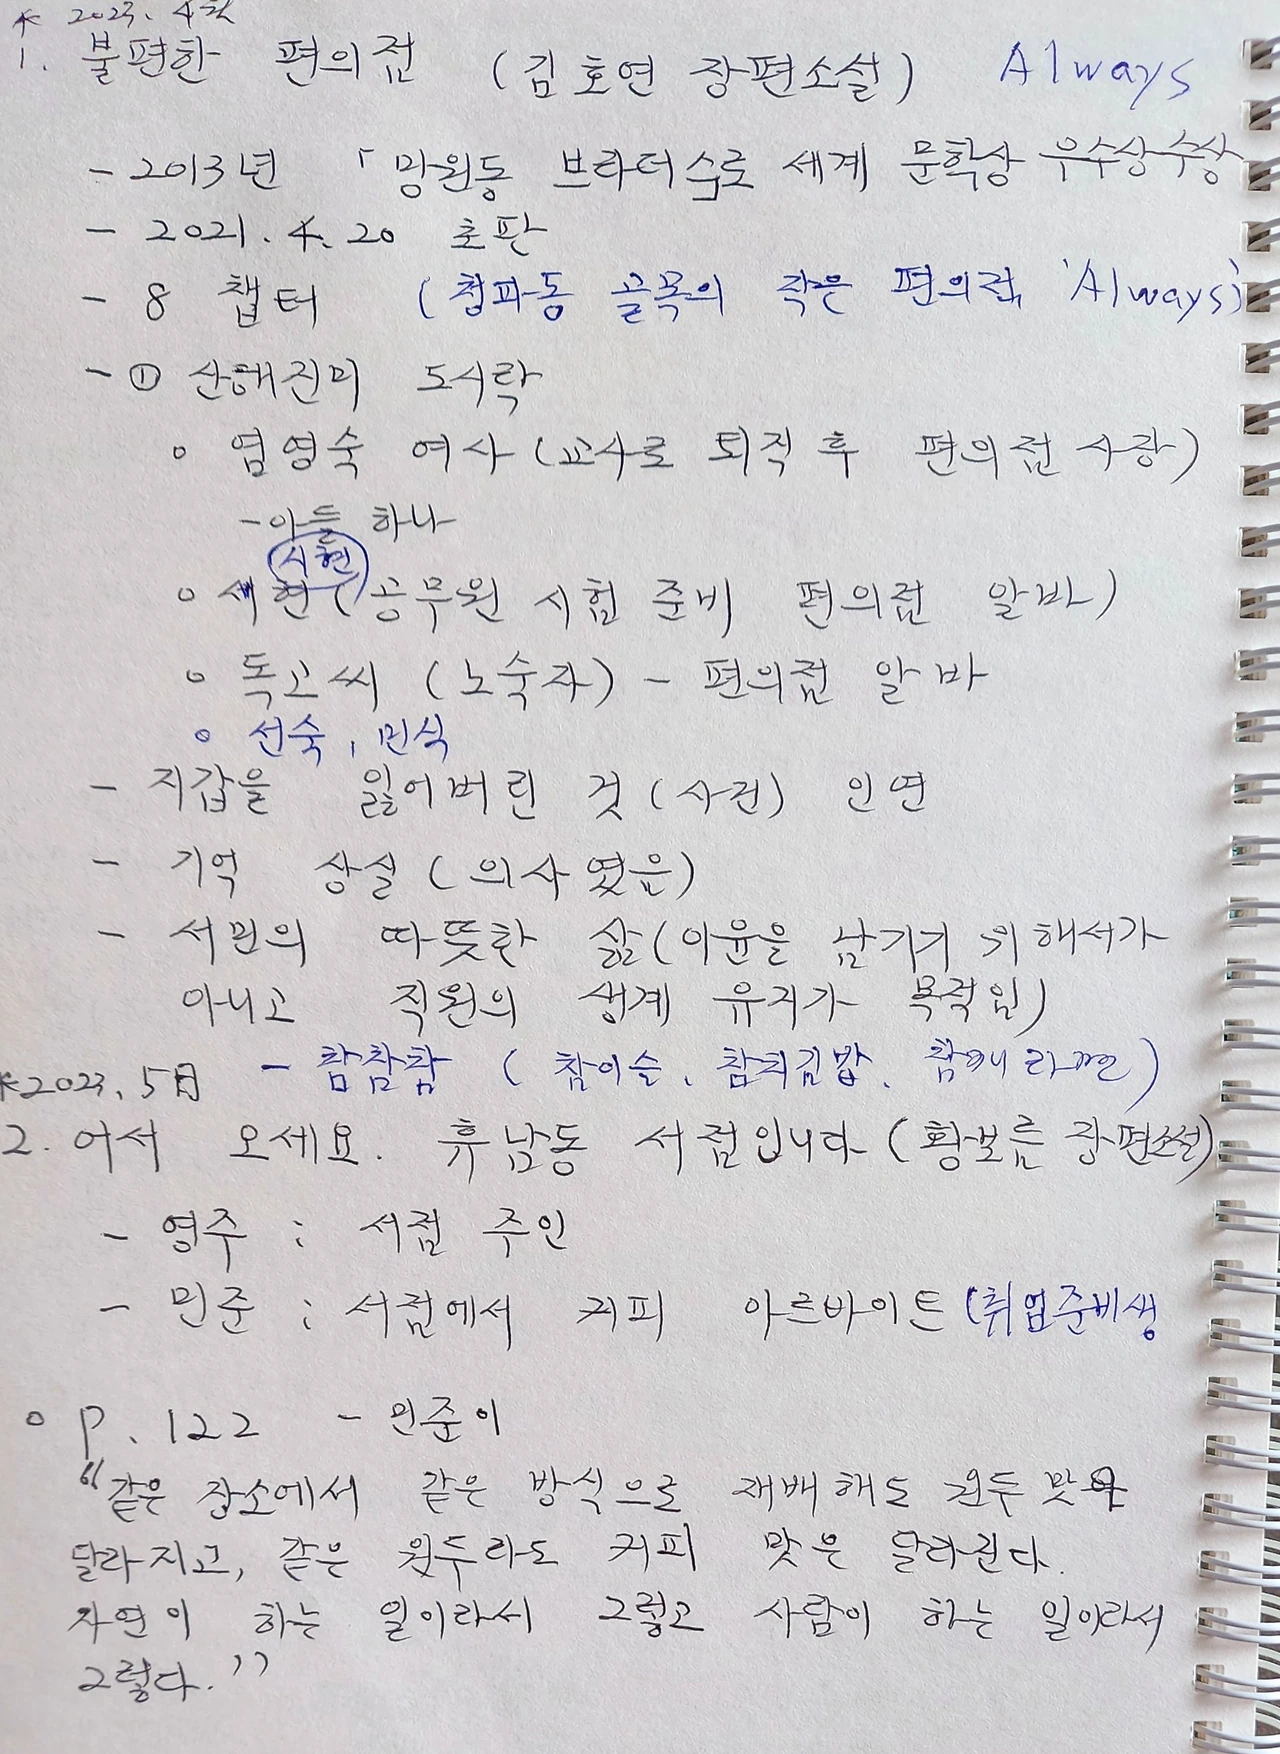 * 2023. 4월
1. 불편한 편의점 (김호연 장편소설) Always
- 2013년 「망원동 브라더스」로 세계 문학상 우수상 수상
- 2021. 4. 20 초판
- 8 챕터 (청파동 골목의 작은 편의점, 'Always)
- ① 산해진미 도시락
○ 염영숙 여사 (교사로 퇴직 후 편의점 사장)
- 아들 하나
시현
○ 세현 (공무원 시험 준비 편의점 알바)
○ 독고씨 (노숙자) - 편의점 알바
○ 선숙, 민식
- 지갑을 잃어버린 것 (사건) 인연
- 기억 상실 (의사였음)
- 서민의 따뜻한 삶 (이윤을 남기기 위해서가
아니고 직원의 생계 유지가 목적임)
- 참참참 (참이슬, 참치김밥, 참깨라면)
*2023. 5月
2. 어서 오세요. 휴남동 서점입니다 (황보름 장편소설)
- 영주 : 서점 주인
- 민준 : 서점에서 커피 아르바이트 (취업준비생
○ P. 122 - 민준이
"같은 장소에서 같은 방식으로 재배해도 원두 맛이
달라지고, 같은 원두라도 커피 맛은 달라진다.
자연이 하는 일이라서 그렇고 사람이 하는 일이라서
그렇다."